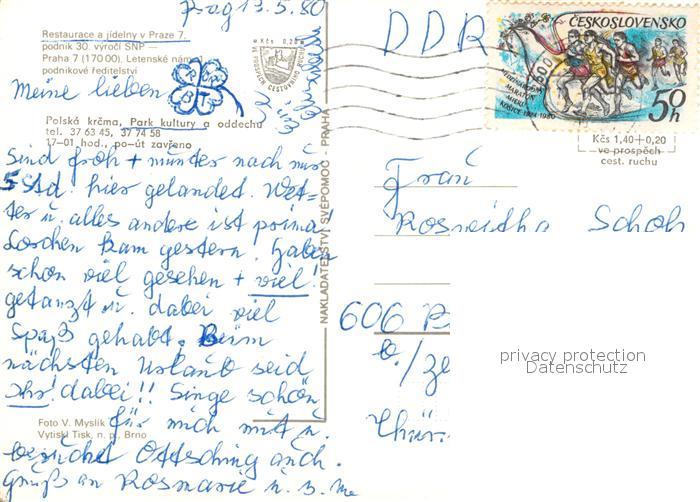 Prag 13.5.80
Restaurace a jídelny v Praze 7.
podnik 30. výročí SNP —
Praha 7 (170 00), Letenské nám.
podnikové ředitelství
Meine lieben
Polská krčma, Park kultury a oddechu
tel. 37 63 45, 37 74 58
17–01 hod., po–út zavřeno
Sind froh + munter nach nur
5 Std. hier gelandet. Wet-
ter u. alles andere ist prima
kam gestern. Haben
schon viel gesehen + viel!
getanzt u. dabei viel
Spaß gehabt. Beim
nächsten Urlaub seid
Ihr! dabei!! Singe schön
Foto V. Myslík
für mich mit u.
Vytiskl Tisk, n. p., Brno
auch.
Gruß an Rosmarie u.
NAKLADATELSTVÍ SVÉPOMOC - PRAHA
Kčs 0,20
DDR
ČESKOSLOVENSKO
MEZINÁRODNÍ
MARATÓN
MIERU
KOŠICE 1924-1980
50h
Kčs 1,40+0,20
ve prospěch
cest. ruchu
Frau
606
privacy protection
Datenschutz
Thür.